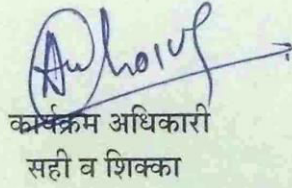 कार्यक्रम अधिकारी
सही व शिक्का